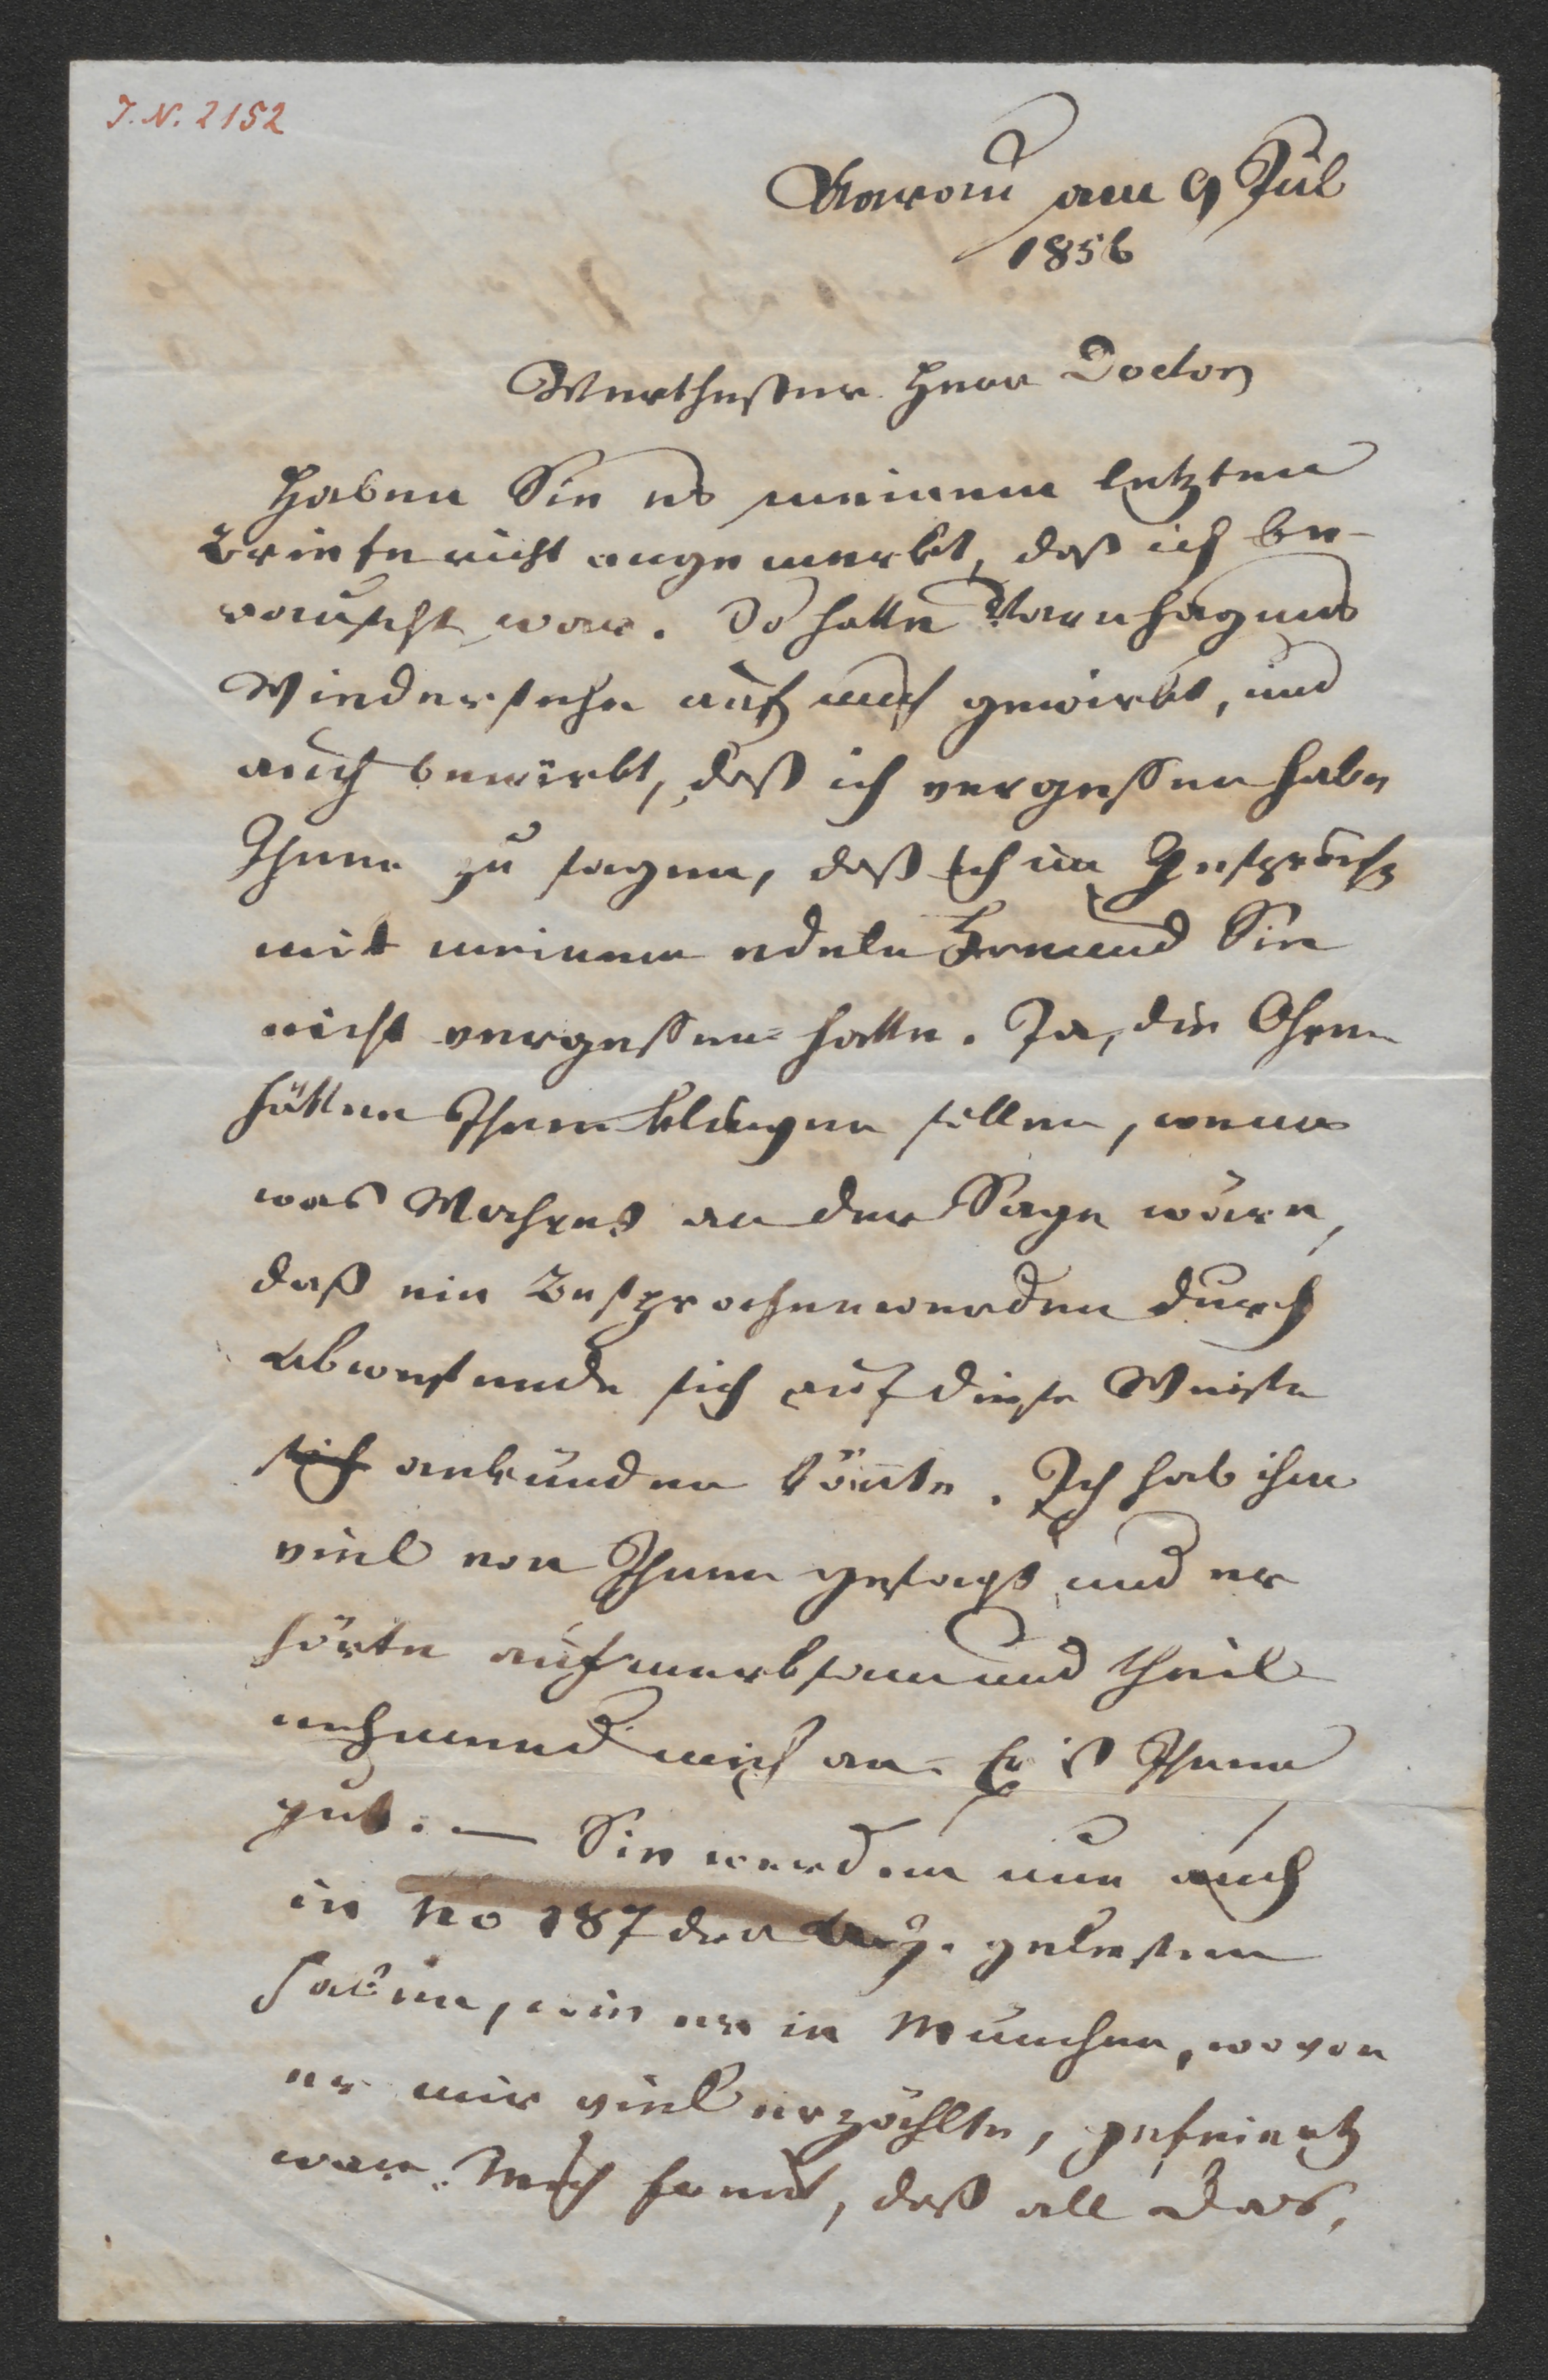 J. N. 2152
Aarau am 9 Jul
1856
Werthester Herr Doctor
Haben Sie es meinem letzten
Briefe nicht angemerkt, daß ich be-
rauscht war. So hatte Varnhagens
Wiedersehn auf mich gewirkt, und
auch bewirkt, daß ich vergessen habe
Ihnen zu sagen, daß ich im Gespräch
mit meinem edeln Freund Sie
nicht vergessen hatte. Ja, die Ohren
hätten Ihnen klingen sollen, wenn
was Wahres an der Sage wäre,
daß ein Besprochenwerden durch
Abwesende sich auf diese Weise
sich ankünden könnte. Ich hab ihm
viel von Ihnen gesagt und er
hörte aufmerksam und theil
nehmend mich an. Er ist Ihnen
gut. — Sie werden nun auch
in No 187 der Aug. gelesen
haben, wie er in München, wovon
er mir viel erzählte, gefeiert
war. Mich freut, daß all das,